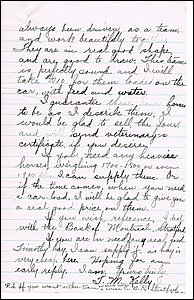 always been driven as a team,
and work beautifully together.
They are in real good shape
and are good to draw. This team
is perfectly sound, and I will
take for them on the
car, with feed and water.
I guarantee them
to be as I describe them, I
would be glad to sell the four
and will send veterinary's
certificate, if you desire.
If you need any heavier
horses, weighing 1600 or
1700 I can supply them. Or
if the time comes, when you need
a car load, I will be glad to give you
a real good price on them.
If you wish reference, I deal
with the Bank of Montreal, Stratford
If you are in need any real good
Timothy hay, I can supply it any day
very cheap here. Hoping for an
early reply, I am, Yours truly
T. M. Kelly
P.S. If you want